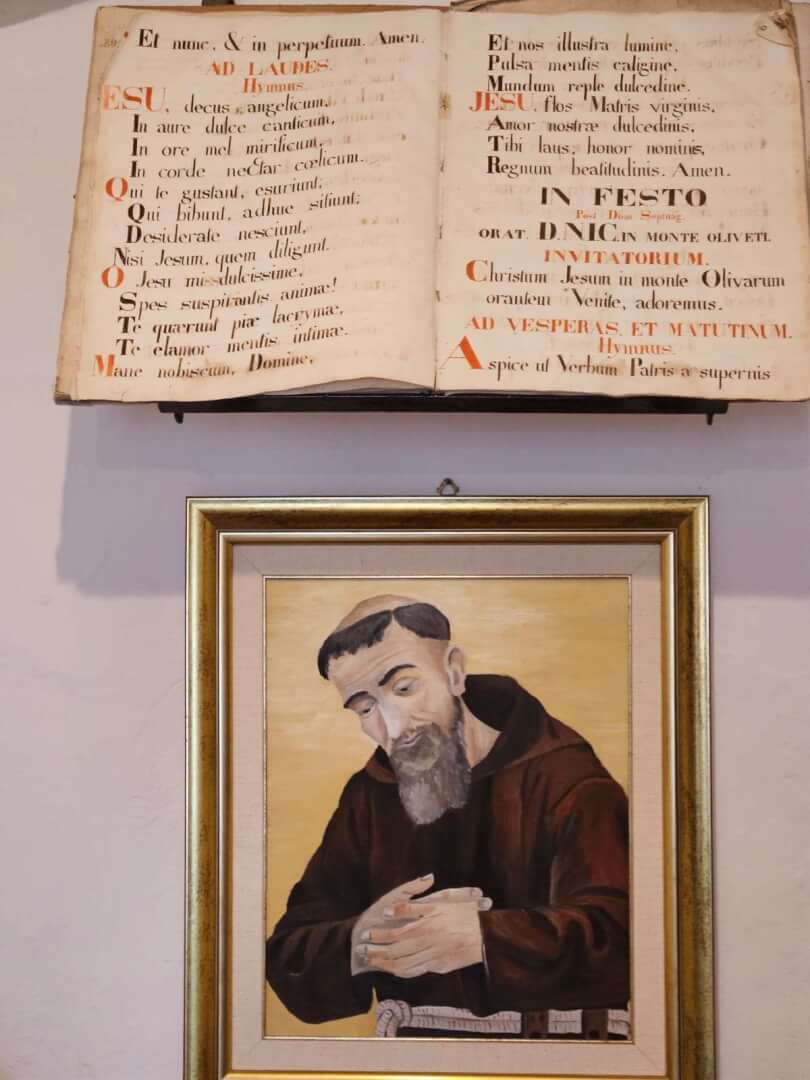 Et nunc, & in perpetuum. Amen.
AD LAUDES.
Hymnus.
JESU, decus angelicum,
In aure dulce canticum,
In ore mel mirificum,
In corde nectar cœlicum.
Qui te gustant, esuriunt;
Qui bibunt, adhuc sitiunt;
Desiderare nesciunt,
Nisi Jesum, quem diligunt.
O Jesu mi dulcissime,
Spes suspirantis animæ!
Te quærunt piæ lacrymæ,
Te clamor mentis intimæ.
Mane nobiscum, Domine,
Et nos illustra lumine,
Pulsa mentis caligine,
Mundum reple dulcedine.
JESU, flos Matris virginis,
Amor nostræ dulcedinis,
Tibi laus, honor nominis,
Regnum beatitudinis. Amen.
IN FESTO
Post Dom Septuag.
ORAT. D.N.I.C. IN MONTE OLIVETI.
INVITATORIUM.
Christum Jesum in monte Olivarum
orantem Venite, adoremus.
AD VESPERAS, ET MATUTINUM.
Hymnus.
Aspice ut Verbum Patris a supernis